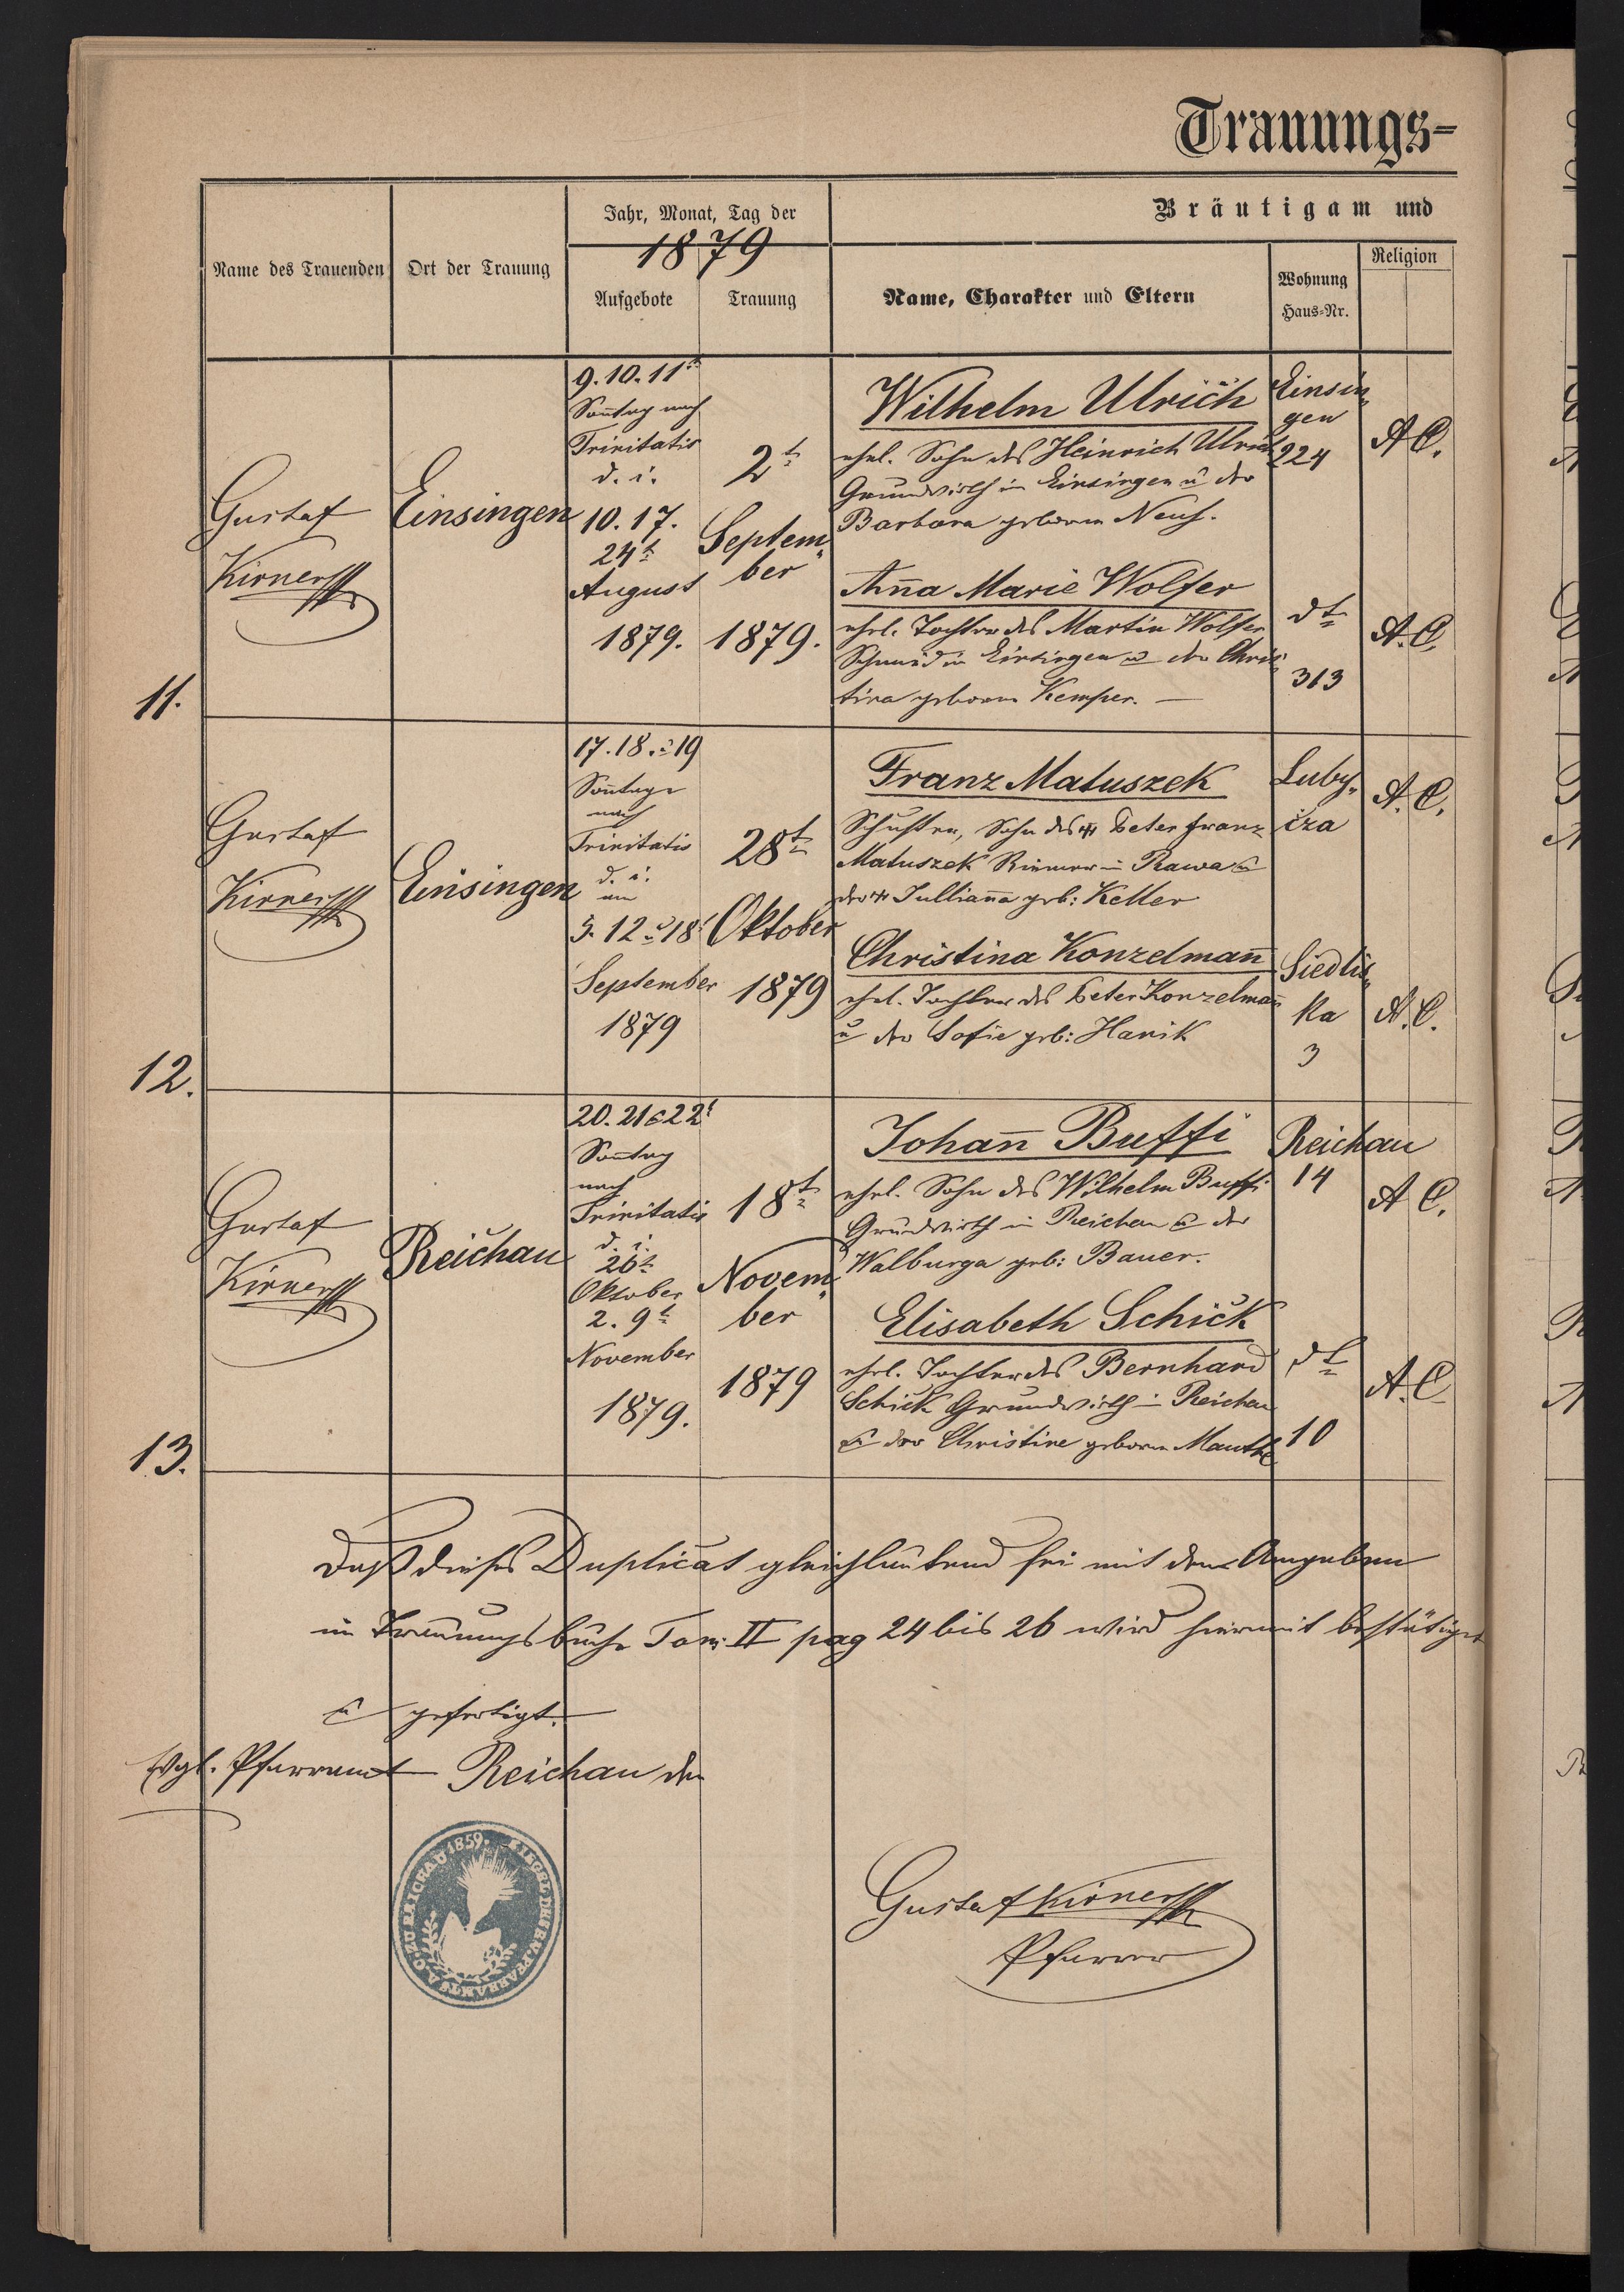 Trauungs-
Name des Trauenden
Ort der Trauung
Jahr, Monat, Tag der
1879
Aufgebote
Trauung
Bräutigam und
Name, Charakter und Eltern
Wohnung
Haus-Nr.
Religion
11.
Gustaf
Kirner
Einsingen
9. 10. 11t
Sontag nach
Trinitatis
d. i.
10. 17.
24t
August
1879.
2t
Septem„
ber
1879.
Wilhelm Ulrich
ehel. Sohn des Heinrich Ulrich
Grundwirth in Einsingen u der
Barbara geboren
Einsin„
gen
224
A C.
Anna Marie Wolfer
ehel. Tochter des Martin Wolfer
Schmid in Einsingen u der Chris„
tina geboren Kemper. —
dt
313
A. C.
12.
Gustaf
Kirner
Einsingen
17. 18. u 19
Sontage
nach
Trinitatis
d. i.
am
5. 12 u 18t
September
1879
28t
Oktober
1879
Franz Matuszek
Schuster, Sohn des Peter Franz
Matuszek Riemer in Rawa u
der Julliana geb: Keller
Luby„
cza
A. C.
Christina Konzelman
ehel. Tochter des Peter Konzelman
u der Sofie geb: Hanik
Siedlis„
ka
3
A. C.
13.
Gustaf
Kirner
Reichau
20. 21 u 22t
Sontag
nach
Trinitatis
d. i.
26t
Oktober
2. 9t
November
1879.
18t
Novem„
ber
1879
Johan Buffi
ehel. Sohn des Wilhelm Buffi
Grundwirth in Reichau u der
Walburga geb: Bauer.
Reichau
14
A C.
Elisabeth Schick
ehel. Tochter des Bernhard
Schick Grundwirth in Reichau
u der Christine geboren Mauthe
dt
10
A. C
Daß dieses Duplicat gleichlautend sei mit den Angaben
im Trauungsbuche Tom: II pag 24 bis 26 wird hiermit bestätiget
u gefertigt.
Evgl. Pfarramt Reichau den
Gustaf Kirner
Pfarrer